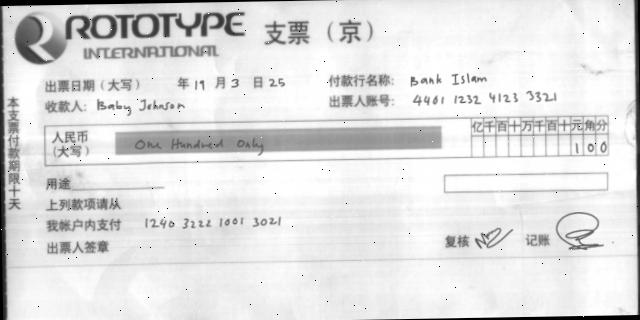 ROTOTYPE
INTERNATIONAL
支票（京）
出票日期（大写） 年 19 月 3 日 25 付款行名称： Bank Islam
收款人： Baby Johnson 出票人账号： 4401 1232 4123 3321
本支票付款期限十天
人民币（大写） One Hundred Only
亿千百十万千百十元角分
1 0 0
用途
上列款项请从
我帐户内支付 1240 3222 1001 3021
出票人签章 复核 记账